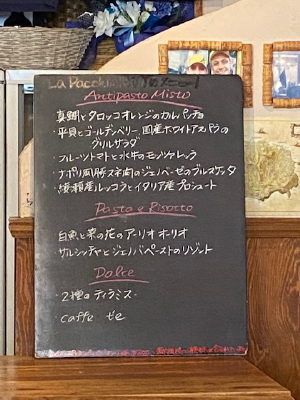 La Pacchia
Antipasto Misto
真鯛とタロッコオレンジのカルパッチョ
・平貝とゴールデンベリー 国産ホワイトアスパラの
グリルサラダ
・フルーツトマトと水牛のモッツァレッラ
・ナポリ風豚スネ肉のジェノベーゼのブルスケッタ
・綾瀬産ルッコラとイタリア産プロシュート
Pasta e Risotto
白魚と菜の花のアーリオオーリオ
・サルシッチャとジェノバペーストのリゾット
Dolce
・2種のティラミス
・Caffe